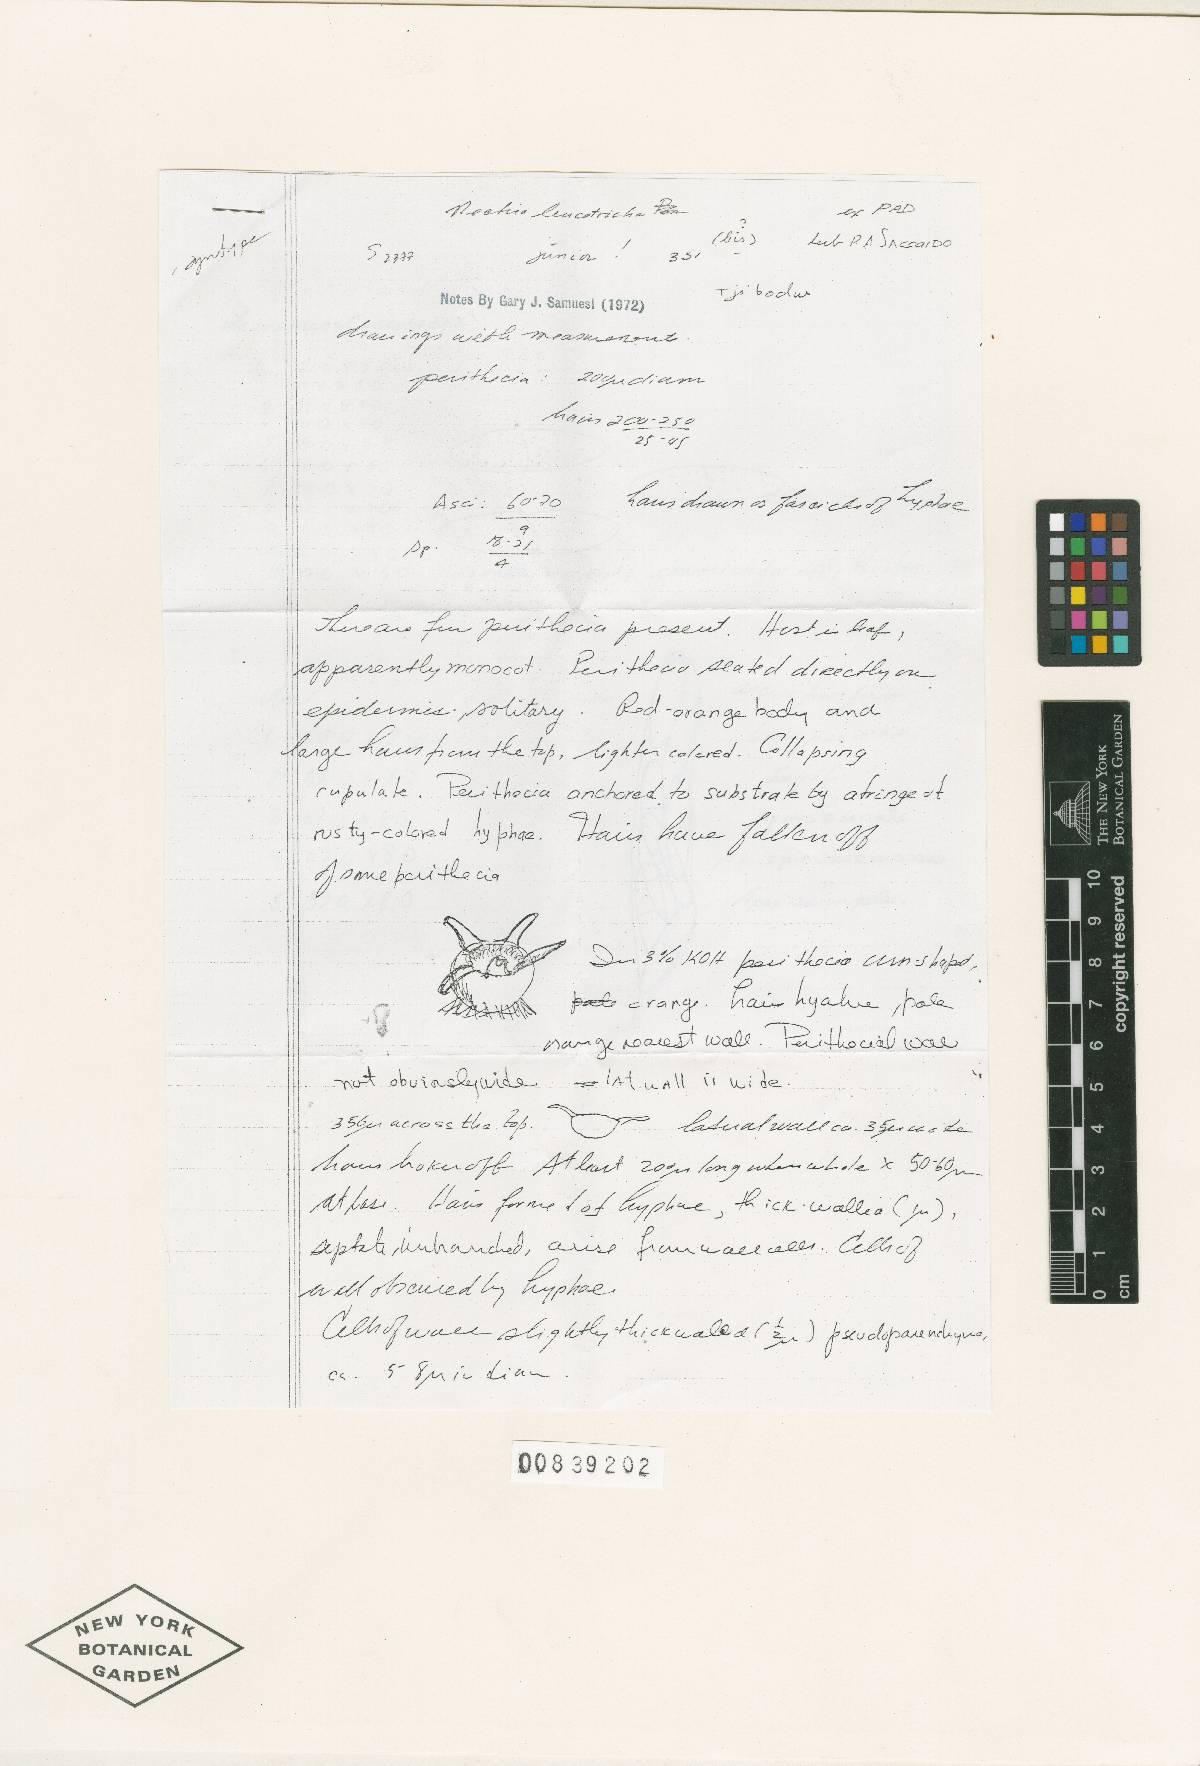 Nectria leucotricha
ex PAD
syntype
S 2377 junior ! 351 (bis) ?
hub P.A. SACCARDO
Tjibodas
Notes By Gary J. Samuesl (1972)
drawings with measurements.
perithecia: 200µ diam
hairs 200-250
25-45
Asci: 60-70
9
hairs drawn as fascicles of hyphae
Sp. 18-21
4
There are few perithecia present. Host is leaf,
apparently monocot. Perithecia seated directly on
epidermis, solitary. Red-orange body and
large hairs from the top, lighter colored. Collapsing
cupulate. Perithecia anchored to substrate by a fringe of
rusty-colored hyphae. Hairs have fallen off
of some perithecia
In 3% KOH perithecia urn shaped,
pale orange. hairs hyaline, pale
orange nearest wall. Perithecial wall
not obviously wide wall is wide.
350µ across the top. lateral wall ca. 35µ wide
hairs broken off At least 200µ long when whole x 50-60µ
at base. Hairs formed of hyphae, thick-walled ( µ),
septate, unbranched, arise from wall cells. Cells of
wall obscured by hyphae.
Cells of wall slightly thick walled (½µ) pseudoparenchyma,
ca. 5-8µ in diam.
00839202
NEW YORK
BOTANICAL
GARDEN
THE NEW YORK
BOTANICAL GARDEN
copyright reserved
10
9
8
7
6
5
4
3
2
1
0
cm